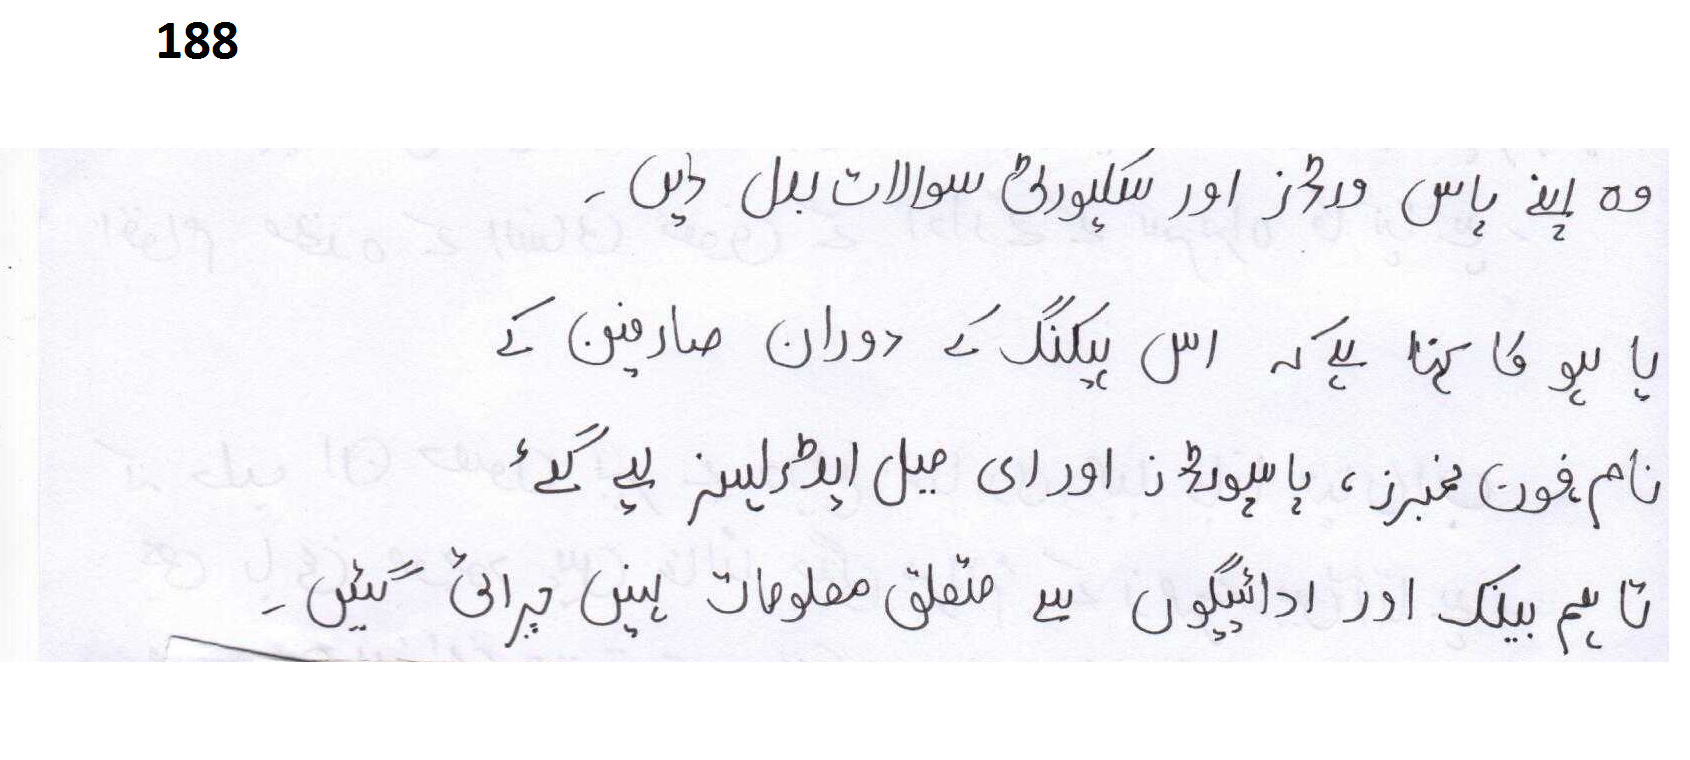 188
وہ اپنے پاس ورڈز اور سکیورٹی سوالات بدل دیں ۔
یا ہو کا کہنا ہے کہ اس ہیکنگ کے دوران صارفین کے
نام، فون نمبرز، پاسپورڈز اور ای میل ایڈریسز لیے گئے
تا ہم بینک اور ادائیگیوں سے متعلق معلومات نہیں چرائی گئیں ۔